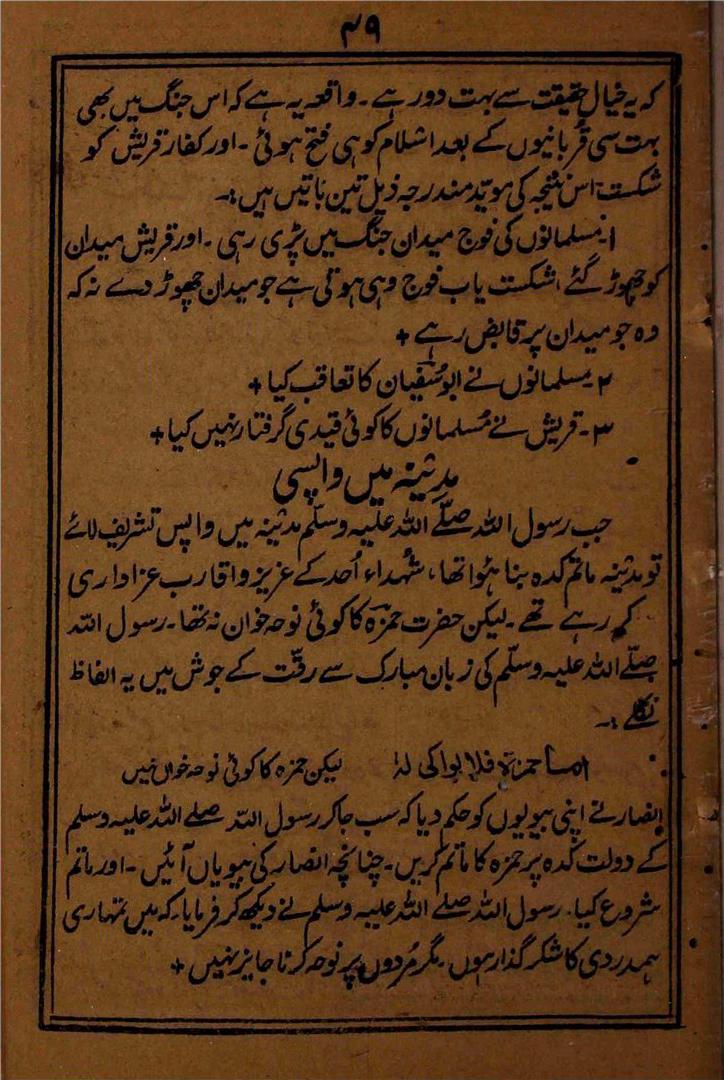 ۴۹
کہ یہ خیال حقیقت سے بہت دور ہے۔ واقعہ یہ ہے کہ اس جنگ میں بھی
بہت سی قربانیوں کے بعد اسلام کو ہی فتح ہوئی۔ اور کفار قریش کو
شکست۔ اس نتیجہ کی موید مندرجہ ذیل تین باتیں ہیں:۔
۱۔ مسلمانوں کی فوج میدان جنگ میں پڑی رہی۔ اور قریش میدان
کو چھوڑ گئے، شکست یاب فوج وہی ہوتی ہے جو میدان چھوڑ دے نہ کہ
وہ جو میدان پر قابض رہے +
۲۔ مسلمانوں نے ابوسُفیان کا تعاقب کیا +
۳۔ قریش نے مُسلمانوں کا کوئی قیدی گرفتار نہیں کیا +
مدینہ میں واپسی
جب رسول اللہ صلّے اللہ علیہ وسلّم مدینہ میں واپس تشریف لائے
تو مدینہ ماتم کدہ بنا ہُوا تھا، شُہداء اُحد کے عزیز و اقارب عزاداری
کر رہے تھے۔ لیکن حضرت حمزہؓ کا کوئی نوحہ خوان نہ تھا۔ رسول اللہ
صلّے اللہ علیہ وسلّم کی زبان مبارک سے رقّت کے جوش میں یہ الفاظ
نکلے:۔
اما حمزۃ فلا بواکی لہٗ لیکن حمزہ کا کوئی نوحہ خواں نہیں
انصار نے اپنی بیویوں کو حکم دیا کہ سب جا کر رسول اللہ صلے اللہ علیہ وسلم
کے دولت کدہ پر حمزہ کا ماتم کریں۔ چنانچہ انصار کی بیویاں آئیں۔ اور ماتم
شروع کیا۔ رسول اللہ صلے اللہ علیہ وسلم نے دیکھ کر فرمایا۔ کہ میں تمہاری
ہمدردی کا شکر گذار ہوں۔ مگر مُردوں پر نوحہ کرنا جایز نہیں +